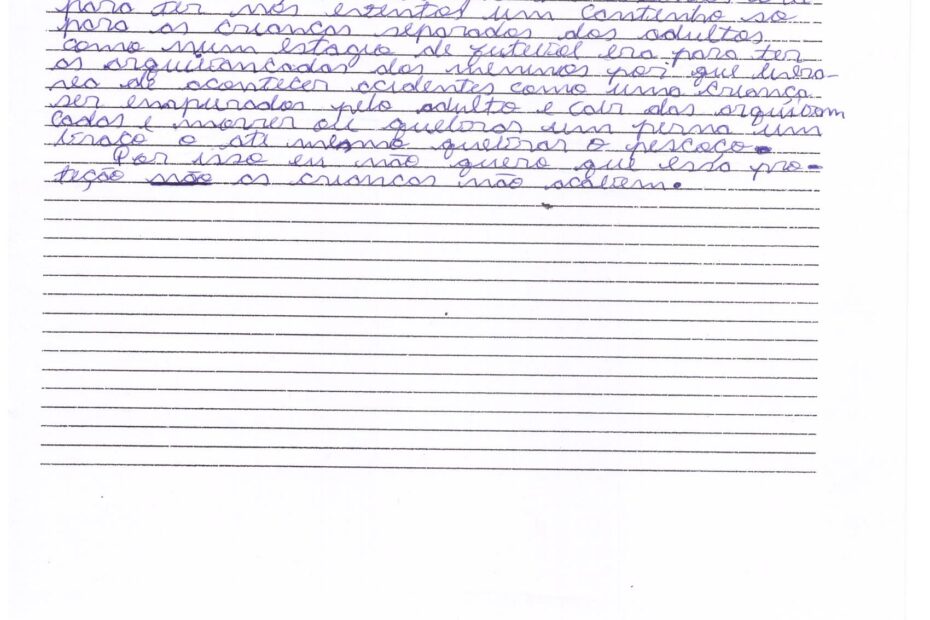 para ter nos eventos um cantinho so
para as crianças separadas dos adultos
como num estagio de futebol era para ter
as arquibancadas dos meninos por que livra-
ria de acontecer acidentes como uma criança
ser enapurados pelo adulto e cair das arquibam
cadas e morrer ou quebras um perna um
braço o até mesmo quebrar o pescoço.
Por isso eu não quero que essa pro-
teção não as criancas não acabem.